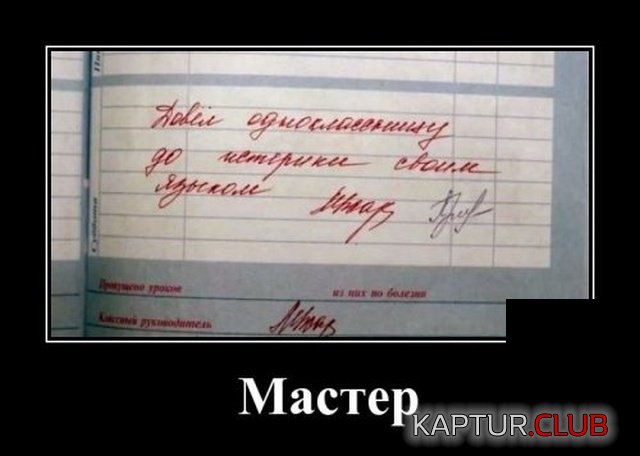 Суббота
Довёл одноклассницу
до истерики своим
языком
Пропущено уроков из них по болезни
Классный руководитель
Мастер
KAPTUR.CLUB